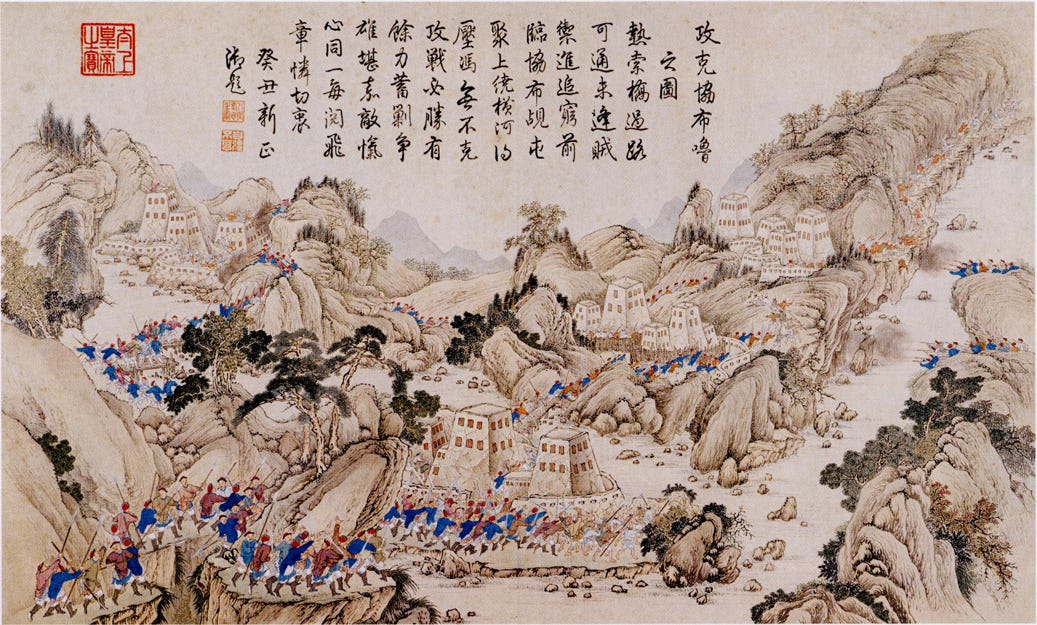 攻克協布嚕
之圖
熱索橋過路
可通未逢賊
禦進追窮前
臨協布覘屯
聚上繞橫河得
壓馮無不克
攻戰必勝有
餘力蓄剿爭
雄堪嘉敵愾
心同一每閱飛
章憐切衷
癸丑新正
御題
太上
皇帝
之寶